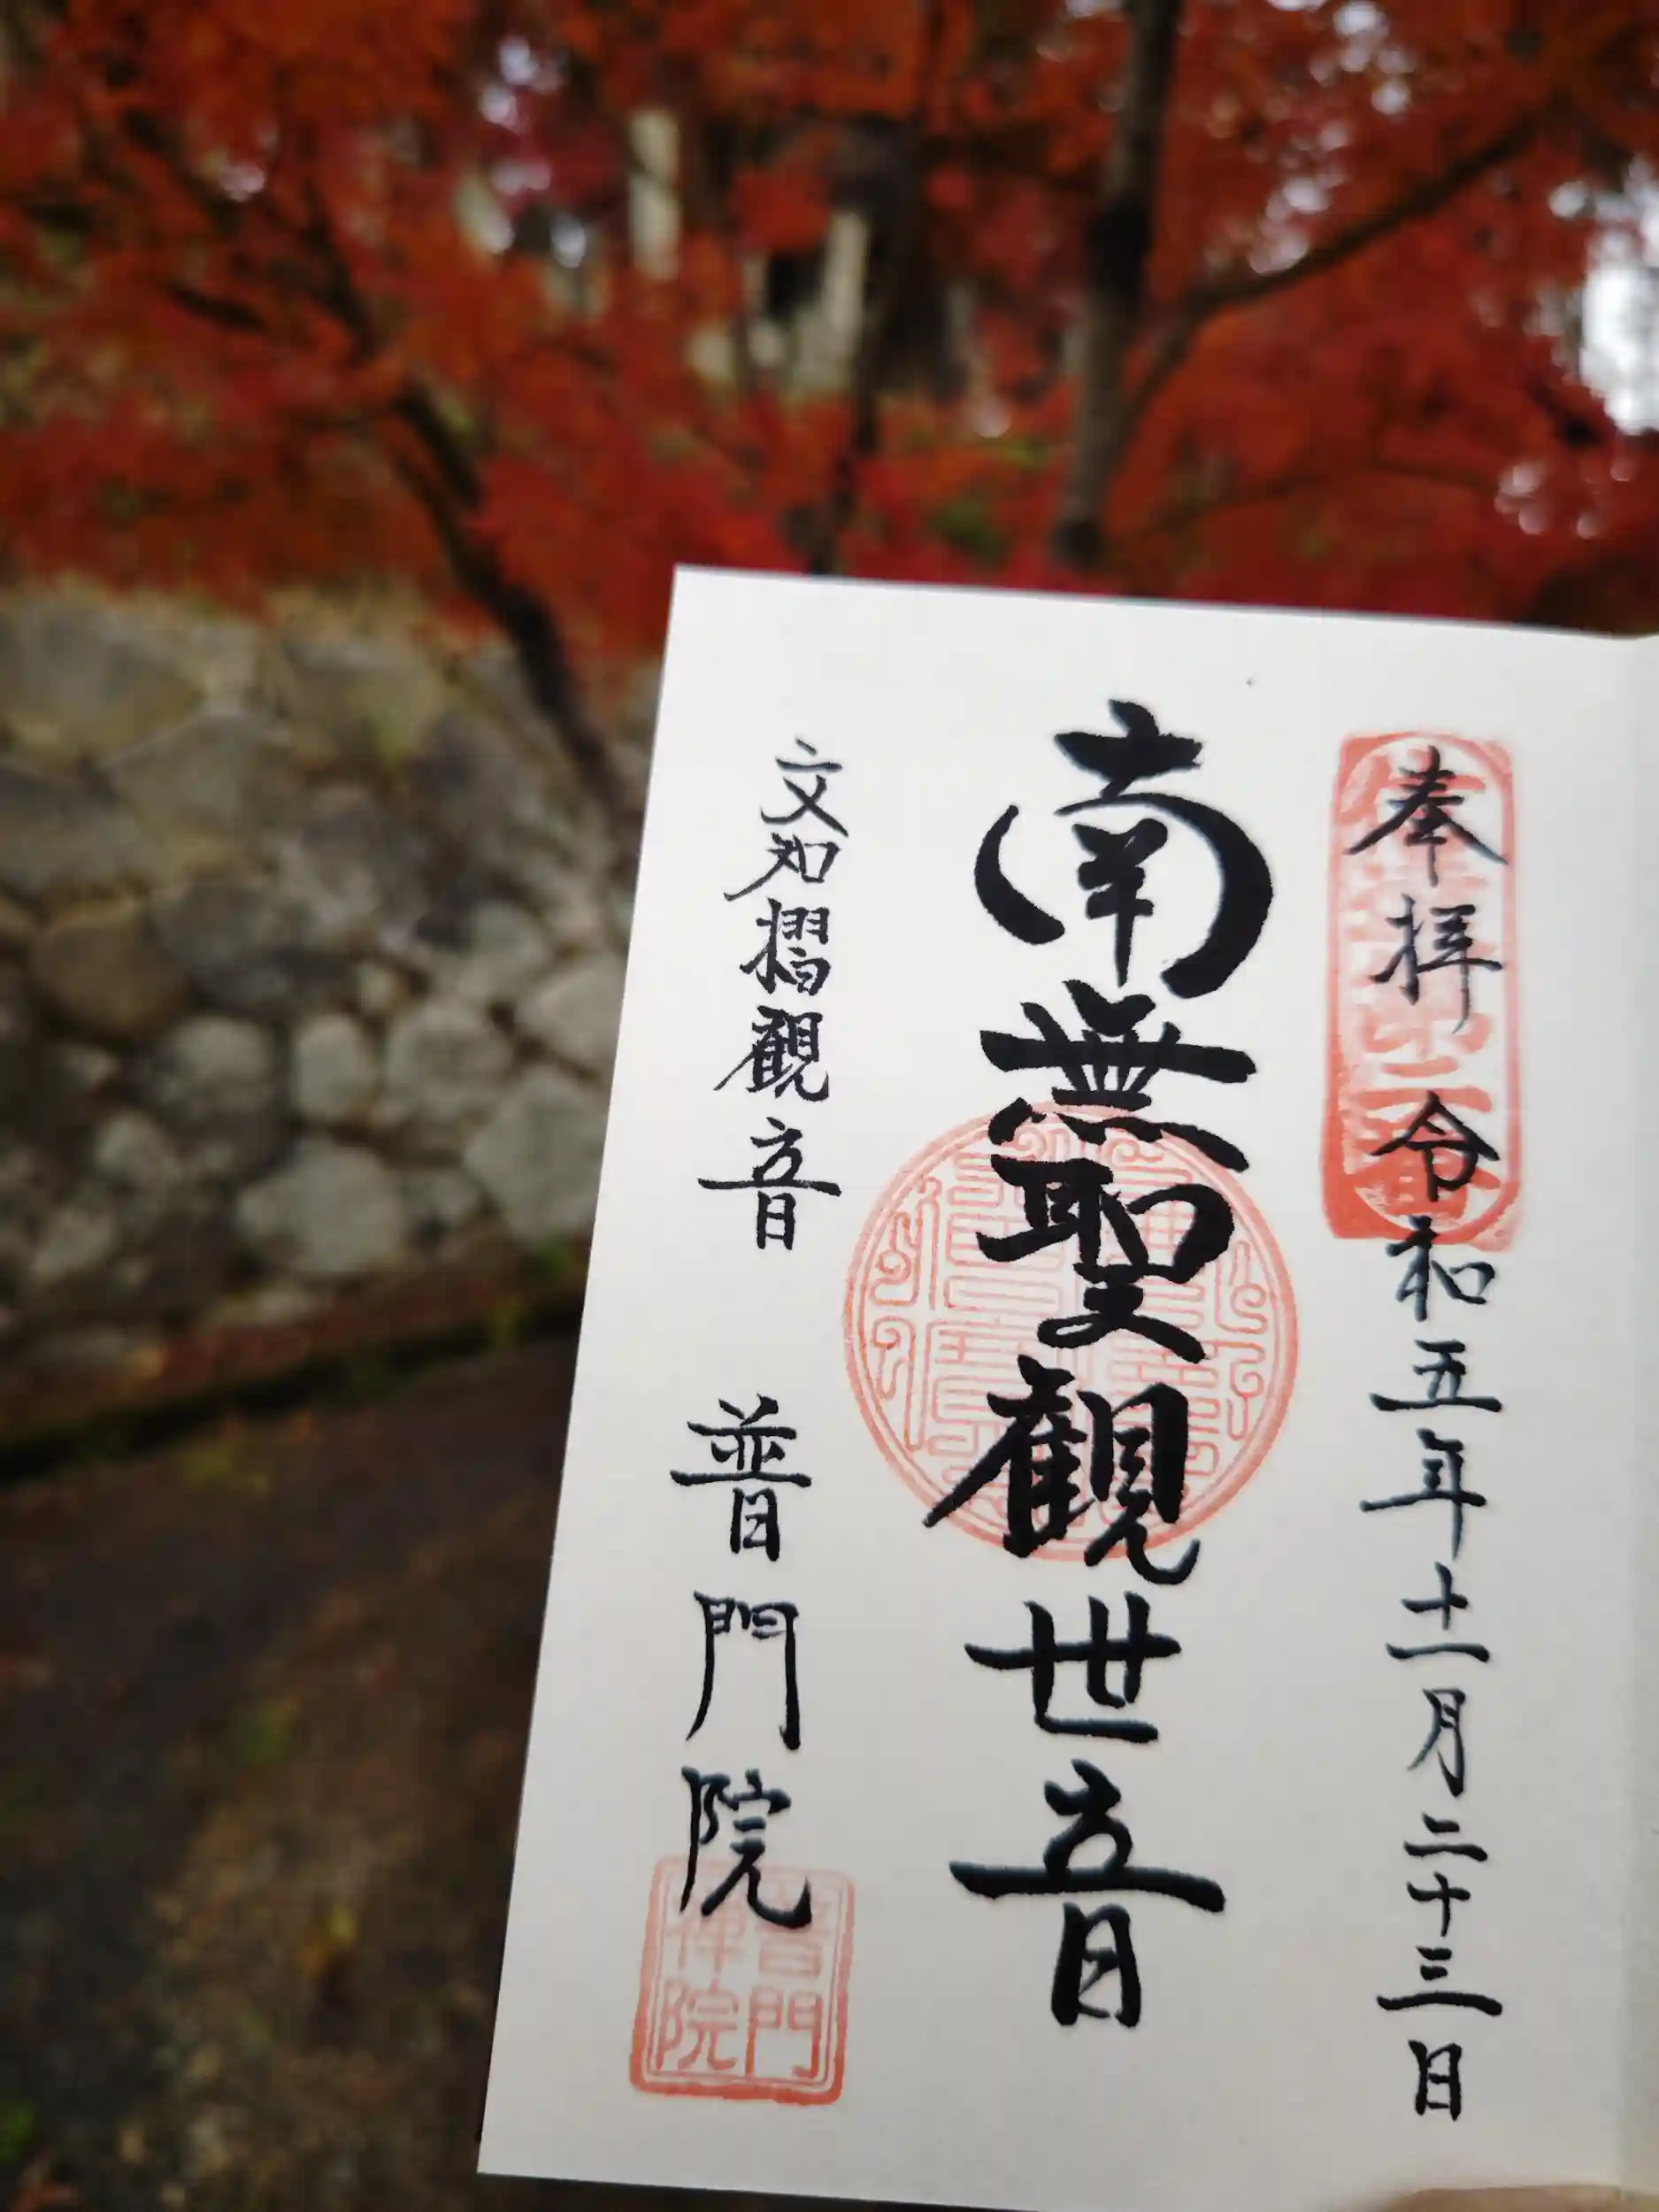 奉拝 令和五年十一月二十三日
南無聖観世音
文知摺観音 普門院
普門
禅院